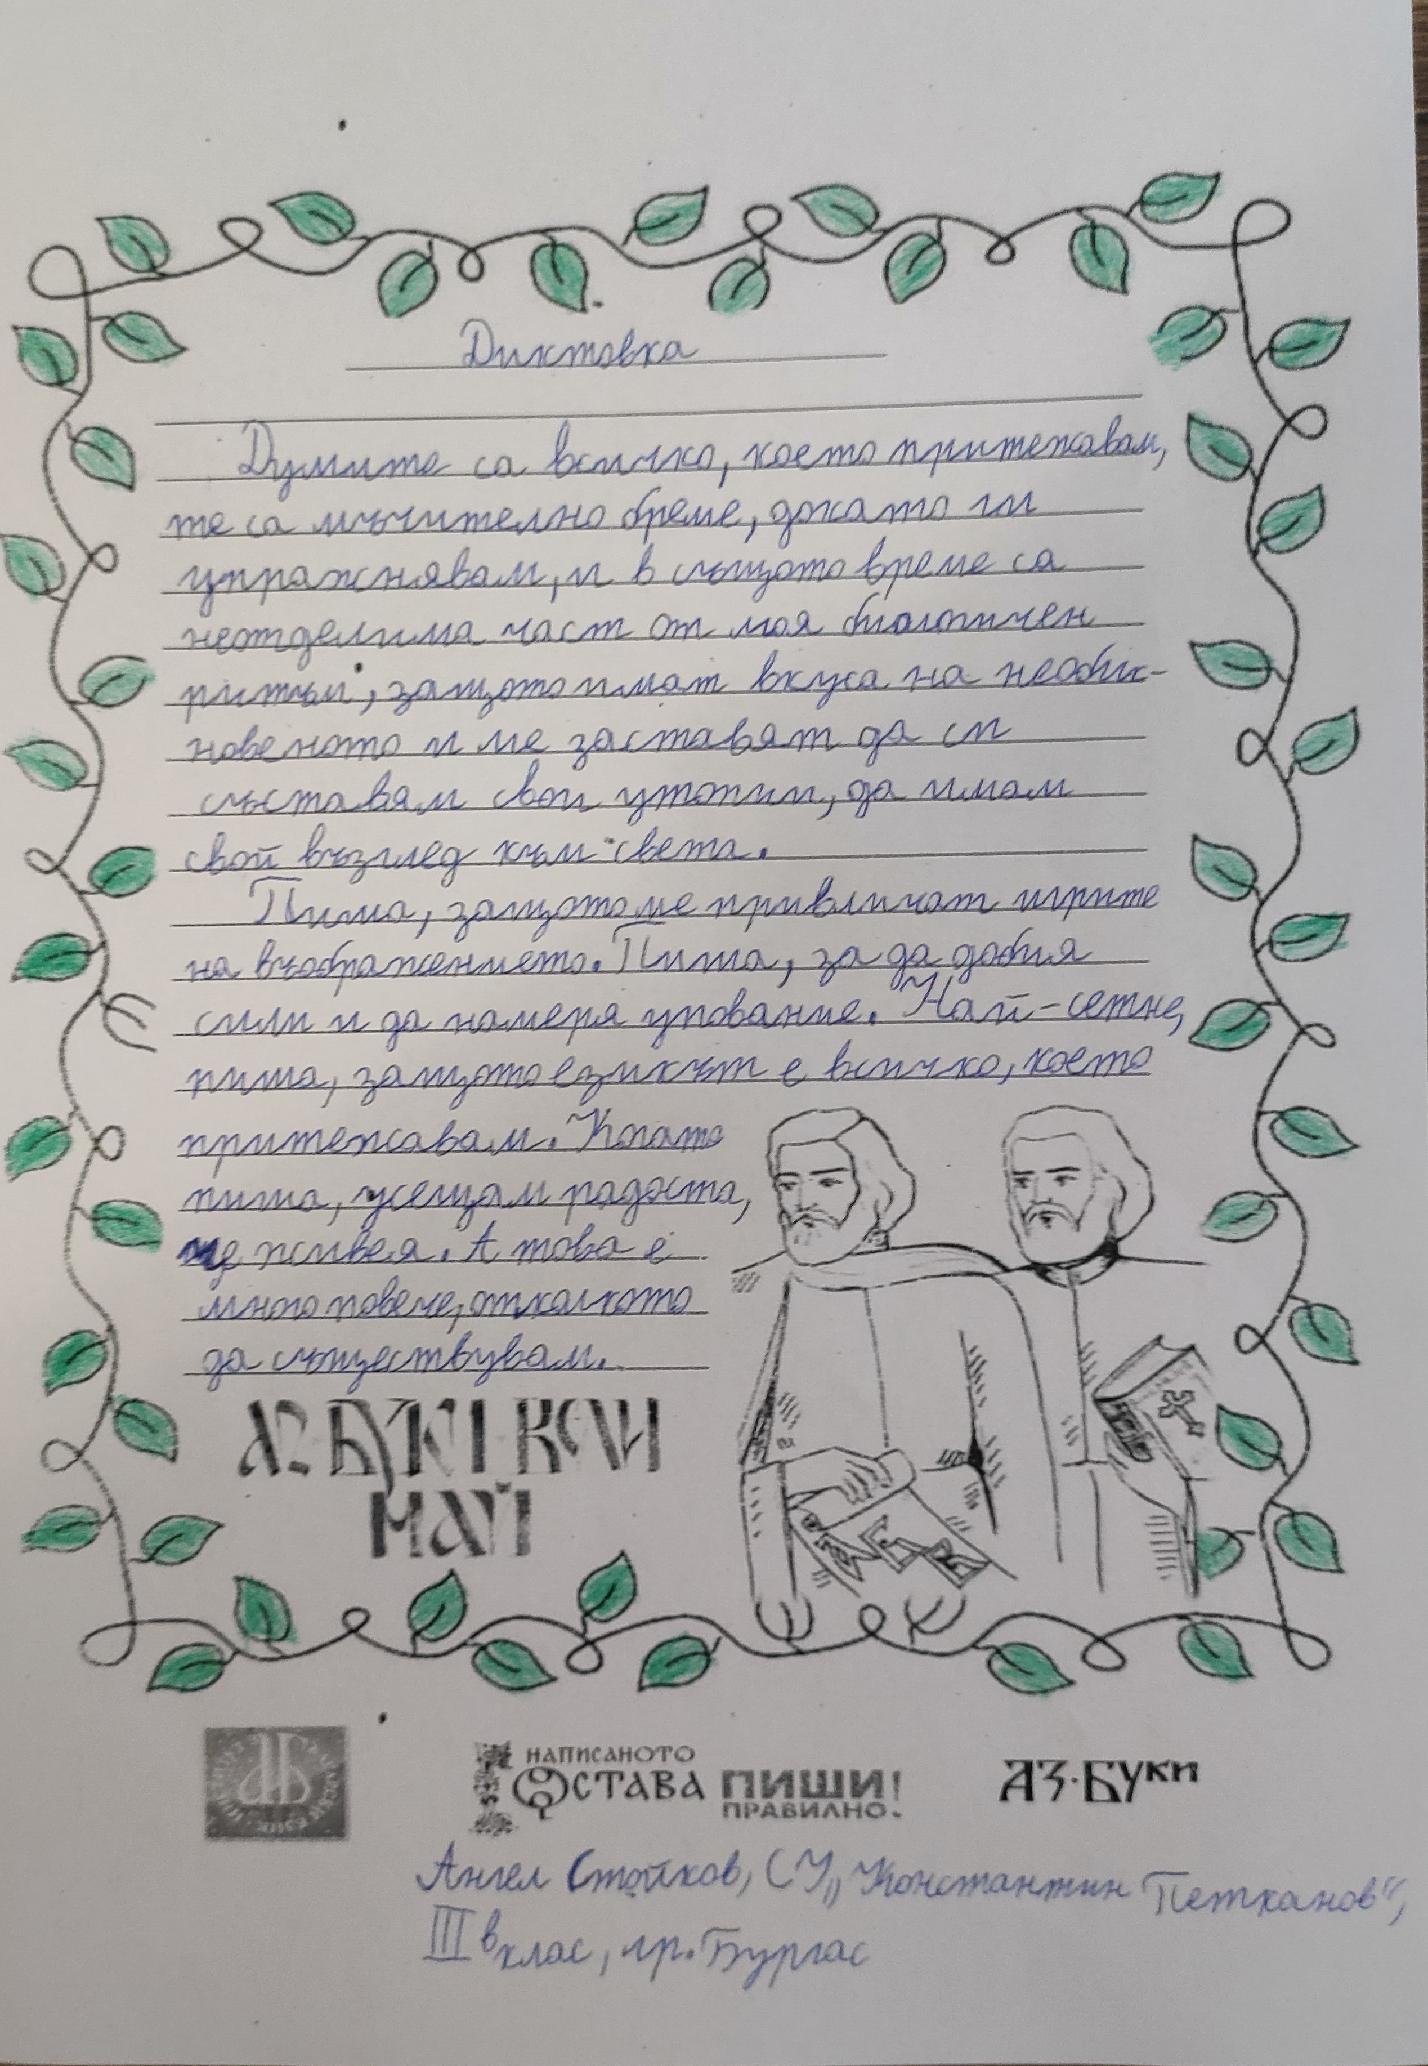 Диктовка
Думите са всичко, което притежавам,
те са мъчително бреме, докато ги
упражнявам, и в същото време са
неотделима част от моя биологичен
ритъм, защото имат вкуса на необик-
новеното и ме заставят да си
съставям свои утопии, да имам
свой възглед към света.
Пиша, защото ме привличат игрите
на въображението. Пиша, за да добия
сили и да намеря упование. Най-сетне,
пиша, защото езикът е всичко, което
притежавам. Когато
пиша, усещам радоста,
че живея. А това е
много повече, отколкото
да съществувам.
АЗ БУКИ ВЕДИ
МАЙ
НАПИСАНОТО
ОСТАВА ПИШИ!
ПРАВИЛНО.
АЗ·БУКИ
Ангел Стойков, СУ „Константин Петканов“,
III в клас, гр. Бургас